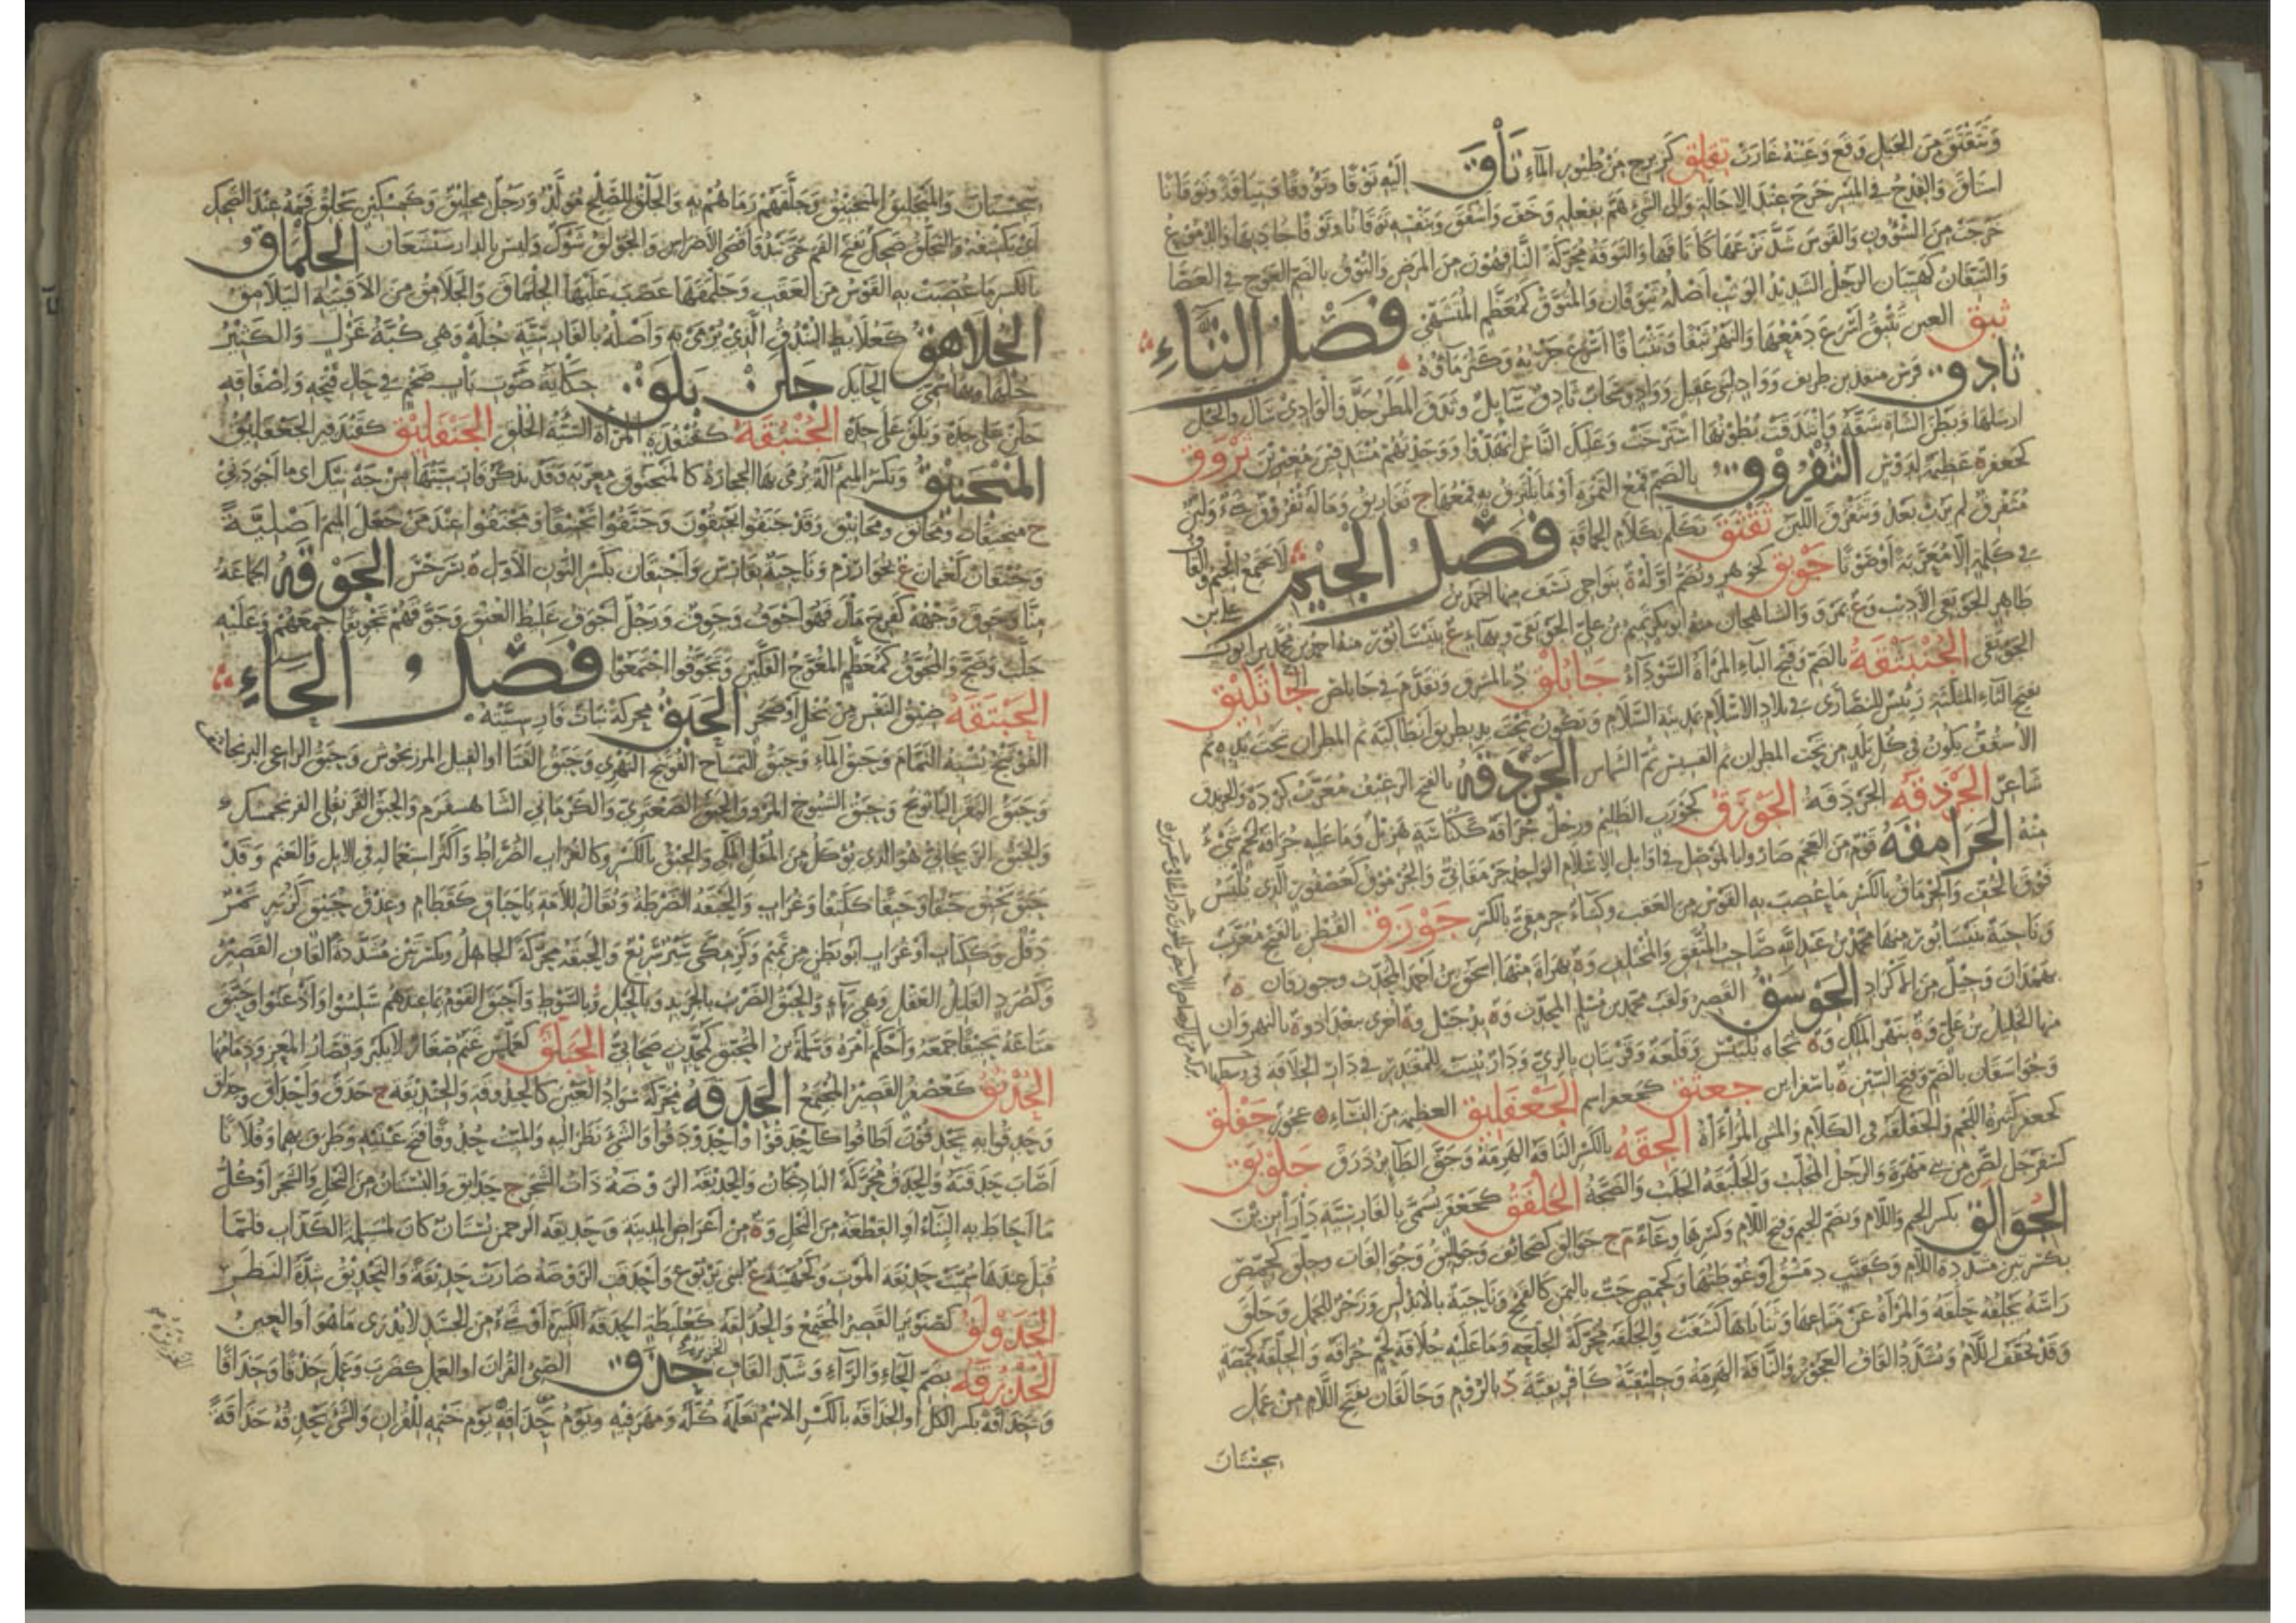 وَتَتَقْتَقَ مِنَ الجَبَلِ وَقَعَ وَعَيْنُهُ غَارَتْ تِفْلِقٌ كَزِبْرِجٍ مِنْ طُيُورِ المَاءِ تَأَقَ إِلَيْهِ تَوْقًا وَتُؤُوقًا وَتِيَاقَةً وَتَوَقَانًا
اشتَاقَ وَالقِدْحُ فِي المَيْسِرِ خَرَجَ عِنْدَ الإِجَالَةِ وَإِلَى الشَّيْءِ هَمَّ بِفِعْلِهِ وَخَفَّ وَأَشْفَقَ وَبِنَفْسِهِ تَوَقَانًا وَتَوْقًا جَادَ بِهَا وَالدُّمُوعُ
خَرَجَتْ مِنَ الشُّؤُونِ وَالقَوْسَ شَدَّ نَزْعَهَا كَأَتَاقَهَا وَالتَّوَقَةُ مُحَرَّكَةً النَّاقِهُونَ مِنَ المَرَضِ وَالتُّوقُ بِالضَّمِّ العِوَجُ فِي العَصَا
وَالتَّيَّقَانُ كَهَيَّبَانٍ الرَّجُلُ الشَّدِيدُ الوَثْبِ أَصْلُهُ تَيْوَقَانُ وَالمُتَوَّقُ كَمُعَظَّمٍ المُتَشَهَّى فَصْلُ الثَّاءِ
ثَبَقَ العَيْنُ تَثْبِقُ أَسْرَعَ دَمْعُهَا وَالنَّهْرُ ثَبْقًا وَتَثْبَاقًا أَسْرَعَ جَرْيُهُ وَكَثُرَ مَاؤُهُ
ثَادِقٌ فَرَسُ مُنْقِذِ بْنِ طَرِيفٍ وَوَادٍ لِبَنِي عُقَيْلٍ وَوَادٍ وَسَحَابٌ ثَادِقٌ سَائِلٌ وَثَدَقَ المَطَرُ جَدَّ وَالوَادِي سَالَ وَالخَيْلَ
أَرْسَلَهَا وَبَطْنَ الشَّاةِ شَقَّهُ وَانْثَدَقَتْ بُطُونُهَا اسْتَرْخَتْ وَعَلَيْكَ النَّاسُ انْهَدُّوا ثَرْوَقُ
كَجَعْفَرٍ ة عَظِيمَةٌ لِدَوْسٍ الثُّفْرُوقُ بِالضَّمِّ قِمَعُ التَّمْرَةِ أَوْ مَا يَلْتَزِقُ بِهِ قِمَعُهَا ج ثَفَارِيقُ وَمَا لَهُ ثُفْرُوقٌ شَيْءٌ وَلَبَنٌ
مُثَفْرَقٌ لَمْ يَرُبْ بَعْدُ وَتَثَفْرَقَ اللَّبَنُ ثَقْثَقَ تَكَلَّمَ بِكَلَامِ الحَمَاقَةِ فَصْلُ الجِيمِ لَا تَجْتَمِعُ الجِيمُ وَالقَافُ
فِي كَلِمَةٍ إِلَّا مُعَرَّبَةً أَوْ صَوْتًا جَوْبَقٌ كَجَوْهَرٍ وَيُضَمُّ أَوَّلُهُ ة بِنَوَاحِي نَسَفَ مِنْهَا أَحْمَدُ بْنُ عَلِيِّ بْنِ
طَاهِرٍ الجَوْبَقِيُّ الأَدِيبُ وَع بِمَرْوَ وَالشَّاهِجَانِ مِنْهُ أَبُو بَكْرٍ تَمِيمُ بْنُ عَلِيٍّ الجَوْبَقِيُّ وَبِهَاءٍ ع بِنَيْسَابُورَ مِنْهُ أَحْمَدُ بْنُ مُحَمَّدِ
الجَوْبَقِيُّ الجُنْبَثْقَةُ بِالضَّمِّ وَفَتْحِ البَاءِ المَرْأَةُ السَّوْدَاءُ جَابُلْقُ د بِالمَشْرِقِ وَتَقَدَّمَ فِي جَابَلَصَ الجَاثَلِيقُ
بِفَتْحِ الثَّاءِ المُثَلَّثَةِ رَئِيسٌ لِلنَّصَارَى فِي بِلَادِ الإِسْلَامِ بِمَدِينَةِ السَّلَامِ وَيَكُونُ تَحْتَ يَدِ بِطْرِيقِ أَنْطَاكِيَةَ ثُمَّ المَطْرَانُ تَحْتَ يَدِهِ ثُمَّ
الأُسْقُفُّ يَكُونُ فِي كُلِّ بَلَدٍ مِنْ تَحْتِ المَطْرَانِ ثُمَّ القِسِّيسُ ثُمَّ الشَّمَّاسُ الجَرْدَقَةُ بِالفَتْحِ الرَّغِيفُ مُعَرَّبُ كِرْدَهْ
شَاعِرٌ الجَرْذَقَةُ الجَرْدَقَةُ الجَوْرَقُ كَجَوْرَبٍ الظَّلِيمُ وَرَجُلٌ جُرَاقَةٌ كَكُنَاسَةٍ هَزِيلٌ وَمَا عَلَيْهِ جُرَاقَةُ لَحْمٍ شَيْءٌ
مِنْهُ الجَرَامِقَةُ قَوْمٌ مِنَ العَجَمِ صَارُوا بِالمَوْصِلِ فِي أَوَائِلِ الإِسْلَامِ الوَاحِدُ جَرْمَقَانِيٌّ وَالجُرْمُوقُ كَعُصْفُورٍ الَّذِي يُلْبَسُ
فَوْقَ الخُفِّ وَالجِرْمَاقُ بِالكَسْرِ مَا عُصِبَ بِهِ القَوْسُ مِنَ العَقَبِ وَكِسَاءٌ جِرْمَقِيٌّ بِالكَسْرِ جَوْزَقٌ القُطْنِ بِالفَتْحِ مُعَرَّبٌ
وَنَاحِيَةٌ بِنَيْسَابُورَ مِنْهَا مُحَمَّدُ بْنُ عَبْدِ اللهِ صَاحِبُ المُتَّفِقِ وَالمُخْتَلِفِ وَة بِهَرَاةَ مِنْهَا إِسْحَقُ بْنُ أَحْمَدَ المُحَدِّثُ وَجُوزَقَانُ ة
بِهَمَذَانَ وَجِيلٌ مِنَ الأَكْرَادِ الجَوْسَقُ القَصْرُ وَلَقَبُ مُحَمَّدِ بْنِ مُسْلِمٍ المُحَدِّثِ وَة بِدُجَيْلٍ وَة أُخْرَى بِبَغْدَادَ وَة بِالنَّهْرَوَانِ
مِنْهَا الخَلِيلُ بْنُ عَلِيٍّ وَة بِنَهْرِ المَلِكِ وَة تُجَاهَ بِلْبِيسَ وَقَلْعَةٌ وَقَرْيَتَانِ بِالرَّيِّ وَدَارٌ بُنِيَتْ لِلْمُقْتَدِرِ فِي دَارِ الخِلَافَةِ فِي وَسَطِهَا
وَجُوَاسَقَانُ بِالضَّمِّ وَفَتْحِ السِّينِ ة بِإِسْفَرَايِنَ جَعْثَقٌ كَجَعْفَرٍ اسْمٌ الجَعْفَلِيقُ العَظِيمَةُ مِنَ النِّسَاءِ عَجُوزٌ جَفْلَقٌ
كَجَعْفَرٍ كَثِيرَةُ اللَّحْمِ وَالجَفْلَقَةُ فِي الكَلَامِ وَالمَشْيِ المُرَاءَاةُ الجِقَّةُ بِالكَسْرِ النَّاقَةُ الهَرِمَةُ وَجَقَّ الطَّائِرُ ذَرَقَ جَلَوْبَقٌ
كَسَفَرْجَلٍ لِصٌّ مِنْ بَنِي مَهْرَةَ وَالرَّجُلُ المُجَلِّبُ وَالجَلَبْقَةُ الجَلَبُ وَالضَّجَّةُ الجَلْفَقُ كَجَعْفَرٍ يُسَمَّى بِالفَارِسِيَّةِ دَارَابْزِينُ
الجُوَالِقُ بِكَسْرِ الجِيمِ وَاللَّامِ وَبِضَمِّ الجِيمِ وَفَتْحِ اللَّامِ وَكَسْرِهَا وِعَاءٌ م ج جَوَالِقُ كَصَحَائِفَ وَجَوَالِيقُ وَجُوَالِقَاتٌ وَجِلَّقٌ كَحِمَّصٍ
بِكَسْرَتَيْنِ مُشَدَّدَةَ اللَّامِ وَكَقِنَّبٍ دِمَشْقُ أَوْ غُوطَتُهَا وَكَحِمِّصٍ حَبٌّ بِاليَمَنِ كَالقَمْحِ وَنَاحِيَةٌ بِالأَنْدَلُسِ وَزَجْرٌ لِلْجَمَلِ وَجَلَقَ
رَأْسَهُ يَجْلِقُهُ حَلَقَهُ وَالمَرْأَةُ عَنْ مَتَاعِهَا وَثَنَايَاهَا كَشَفَتْ وَالجَلَقَةُ مُحَرَّكَةً الجَلَعَةُ وَمَا عَلَيْهِ جُلَاقَةُ لَحْمٍ جُرَاقَةٌ وَالجِلِّقَةُ كَحِمِّصَةٍ
وَقَدْ تُخَفَّفُ اللَّامُ وَتُشَدَّدُ القَافُ العَجُوزُ وَالنَّاقَةُ الهَرِمَةُ وَجِلِّيقِيَّةُ كَإِفْرِيقِيَّةَ د بِالرُّومِ وَجَالَقَانُ بِفَتْحِ اللَّامِ مِنْ عَمَلِ
سِجِسْتَانَ
سِجِسْتَانَ وَالمَنْجَلِيقُ المَنْجَنِيقُ وَجَلَّقَهُمْ رَمَاهُمْ بِهِ وَرَجُلٌ وَكَمِسْكِينٍ يَجْلِقُ فَمَهُ عِنْدَ الضَّحِكِ
أَيْ يَكْشِفُهُ وَالتَّجَلُّقُ ضَحِكٌ بِفَتْحِ الفَمِ حَتَّى يَبْدُوَ أَقْصَى الأَضْرَاسِ وَالجَوْلَقُ شَوْكٌ وَلَيْسَ بِالدَّارَشِيشَعَانِ الجِلْمَاقُ
بِالكَسْرِ مَا عُصِبَتْ بِهِ القَوْسُ مِنَ العَقَبِ وَجَلْمَقَهَا عَصَبَ عَلَيْهَا الجِلْمَاقَ وَالجَلَامِقُ مِنَ الأَقْبِيَةِ اليَلَامِقُ
الجُلَاهِقُ كَعُلَابِطٍ البُنْدُقُ الَّذِي يُرْمَى بِهِ وَأَصْلُهُ بِالفَارِسِيَّةِ جُلَهْ وَهِيَ كُبَّةُ غَزْلٍ وَالكَثِيرُ
جُلَهَا وَبِهَا سُمِّيَ الحَائِكُ جَلَنْ بَلَقْ حِكَايَةُ صَوْتِ بَابٍ ضَخْمٍ فِي حَالِ فَتْحِهِ وَإِصْفَاقِهِ
جَلَنْ عَلَى حِدَةٍ وَبَلَقْ عَلَى حِدَةٍ الجُنْبُقَةُ كَقُنْفُذَةٍ المَرْأَةُ السَّيِّئَةُ الخُلُقِ الجَنْفَلِيقُ كَقَنْدَفِيرٍ الجَعْفَلِيقُ
المَنْجَنِيقُ وَتُكْسَرُ المِيمُ آلَةٌ تُرْمَى بِهَا الحِجَارَةُ كَالمَنْجَنُوقِ مُعَرَّبَةٌ وَقَدْ تُذَكَّرُ فَارِسِيَّتُهَا مَنْ جَهْ نِيكْ أَيْ مَا أَجْوَدَنِي
ج مَنْجَنِيقَاتٌ وَمَجَانِقُ وَمَجَانِيقُ وَقَدْ جَنَقُوا يَجْنِقُونَ وَجَنَّقُوا تَجْنِيقًا وَمَجْنَقُوا عِنْدَ مَنْ جَعَلَ المِيمَ أَصْلِيَّةً
وَجُنْقَانُ كَعُثْمَانَ ع بِخُوَارِزْمَ وَنَاحِيَةٌ بِفَارِسَ وَأَجْنِقَانُ بِكَسْرِ النُّونِ الأَوَّلِ ة بِسَرَخْسَ الجَوْقَةُ الجَمَاعَةُ
مِنَّا وَجَوِقَ وَجْهُهُ كَفَرِحَ مَالَ فَهُوَ أَجْوَقُ وَجَوِقٌ وَرَجُلٌ أَجْوَقُ غَلِيظُ العُنُقِ وَجَوَّقَهُمْ تَجْوِيقًا جَمَعَهُمْ وَعَلَيْهِ
جَلَّبَ وَضَجَّ وَالمُجَوَّقُ كَمُعَظَّمٍ المُعْوَجُّ الفَكَّيْنِ وَتَجَوَّقُوا اجْتَمَعُوا فَصْلُ الحَاءِ
الحَبْتَقَةُ ضِيقُ النَّفْسِ مِنْ بُخْلٍ أَوْ ضَجَرٍ الحَبَقُ مُحَرَّكَةً نَبَاتٌ فَارِسِيَّتُهُ
الفُوتَنْجُ يُشْبِهُ النَّمَّامَ وَحَبَقُ المَاءِ وَحَبَقُ التِّمْسَاحِ الفُوتَنْجُ النَّهْرِيُّ وَحَبَقُ القَنَا أَوِ الفِيلِ المَرْزَنْجُوشُ وَحَبَقُ الرَّاعِي البَرَنْجَاسَفُ
وَحَبَقُ البَقَرِ البَابُونَجُ وَحَبَقُ الشُّيُوخِ المَرْوُ وَالحَبَقُ الصَّعْتَرِيُّ وَالكَرْمَانِيُّ الشَّاهِسْفَرَمُ وَالحَبَقُ القَرَنْفُلِيُّ الفَرَنْجَمُشْكُ
وَالحَبَقُ الرَّيْحَانِيُّ هُوَ الَّذِي يُؤْكَلُ مِنَ المُقْلِ المَكِّيِّ وَالحَبِقُ بِالكَسْرِ وَكَالغُرَابِ الضُّرَاطُ وَأَكْثَرُ اسْتِعْمَالِهِ فِي الإِبِلِ وَالغَنَمِ وَقَدْ
حَبَقَ يَحْبِقُ حَبْقًا وَحَبِقًا كَكَتِفٍ وَغُرَابٍ وَالحَبْقَةُ الضَّرْطَةُ وَيُقَالُ لِلْأَمَةِ يَا حَبَاقِ كَقَطَامِ وَعِذْقُ حُبَيْقٍ كَزُبَيْرٍ تَمْرٌ
دَقَلٌ وَكَكِتَابٍ أَوْ غُرَابٍ أَبُو بَطْنٍ مِنْ تَمِيمٍ وَكَزِمِكَّى سَيْرٌ سَرِيعٌ وَالحَبَقَةُ مُحَرَّكَةً الجَاهِلُ وَبِكَسْرَتَيْنِ مُشَدَّدَةَ القَافِ القَصِيرُ
وَكَصُرَدٍ القَلِيلُ العَقْلِ وَهِيَ بِهَاءٍ وَالحَبْقُ الضَّرْبُ بِالجَرِيدِ وَبِالحَبْلِ وَبِالسَّوْطِ وَأَحْبَقَ القَوْمُ بِمَا عِنْدَهُمْ سَلِسُوا وَأَذْعَنُوا وَحَبَّقَ
مَتَاعَهُ تَحْبِيقًا جَمَعَهُ وَأَحْكَمَ أَمْرَهُ وَسَلَمَةُ بْنُ المُحَبِّقِ كَمُحَدِّثٍ صَحَابِيٌّ الحَبَلَّقُ كَعَمَلَّسٍ غَنَمٌ صِغَارٌ لَا تَكْبُرُ وَقِصَارُ المَعَزِ وَدِمَامُهَا
الحُذْبُقُ كَعُصْفُرٍ القَصِيرُ المُجْتَمِعُ الحَدَقَةُ مُحَرَّكَةً سَوَادُ العَيْنِ كَالحِنْدَوْقَةِ وَالحِنْدِيقَةِ ج حَدَقٌ وَأَحْدَاقٌ وَحِدَاقٌ
وَحَدَقُوا بِهِ يَحْدِقُونَ أَطَافُوا كَأَحْدَقُوا وَاحْدَوْدَقُوا وَالشَّيْءَ نَظَرَ إِلَيْهِ وَالمَيِّتُ حُدُوقًا فَتَحَ عَيْنَيْهِ وَطَرَفَ بِهِمَا وَفُلَانًا
أَصَابَ حَدَقَتَهُ وَالحَدَقُ مُحَرَّكَةً البَاذِنْجَانُ وَالحَدِيقَةُ الرَّوْضَةُ ذَاتُ الشَّجَرِ ج حَدَائِقُ وَالبُسْتَانُ مِنَ النَّخْلِ وَالشَّجَرِ أَوْ كُلُّ
مَا أَحَاطَ بِهِ البِنَاءُ أَوِ القِطْعَةُ مِنَ النَّخْلِ وَة مِنْ أَعْرَاضِ المَدِينَةِ وَحَدِيقَةُ الرَّحْمَنِ بُسْتَانٌ كَانَ لِمُسَيْلِمَةَ الكَذَّابِ فَلَمَّا
قُتِلَ عِنْدَهَا سُمِّيَتْ حَدِيقَةَ المَوْتِ وَكَجُهَيْنَةَ ع لِبَنِي يَرْبُوعٍ وَأَحْدَقَتِ الرَّوْضَةُ صَارَتْ حَدِيقَةً وَالتَّحْدِيقُ شِدَّةُ النَّظَرِ
الحَدَوْلَقُ كَصَنَوْبَرٍ القَصِيرُ المُجْتَمِعُ وَالحُدَلِقَةُ كَعُلَبِطَةٍ الحَدَقَةُ الكَبِيرَةُ أَوْ شَيْءٌ مِنَ الجَسَدِ لَا يُدْرَى مَا هُوَ أَوِ العَيْنُ
الحُذُرِّقَةُ بِضَمِّ الحَاءِ وَالرَّاءِ وَشَدِّ القَافِ الخَزِيرَةُ حَذَقَ الصَّبِيُّ القُرْآنَ أَوِ العَمَلَ كَضَرَبَ وَعَلِمَ حَذْقًا وَحَذَاقًا
وَحَذَاقَةً بِكَسْرِ الكُلِّ أَوِ الحَذَاقَةُ بِالكَسْرِ الِاسْمُ تَعَلَّمَهُ كُلَّهُ وَمَهَرَ فِيهِ وَيَوْمُ حِذَاقِهِ يَوْمُ خَتْمِهِ لِلْقُرْآنِ وَالشَّيْءَ يَحْذِقُهُ حَذَاقَةً